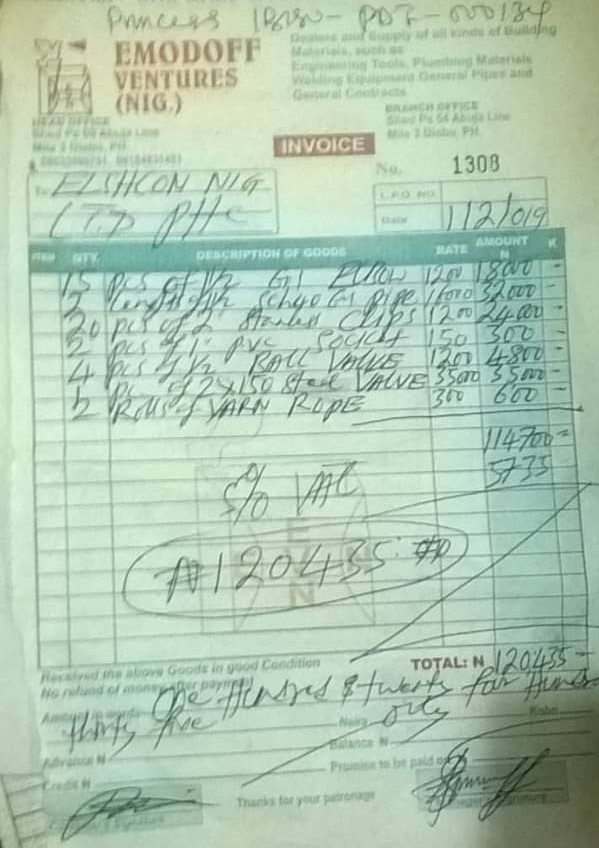 Princess
EMODOFF
VENTURES
(NIG.)
Dealers and Supply of all kinds of Building
Materials, such as
Engineering Tools, Plumbing Materials
Welding Equipment General Pipes and
General Contracts
HEAD OFFICE
Mile 3 Diobu, PH.
BRANCH OFFICE
Shed Ps 54 Abuja Line
Mile 3 Diobu, PH.
INVOICE
No. 1308
To ELSHCON NIG
LTD PHC
L.P.O NO.
Date 1/2/019
ITEM QTY. DESCRIPTION OF GOODS RATE AMOUNT N K
15 pcs of 1/2 GI ELBOW 1200 18000 -
2 length of 1/2 Sch40 GI pipe 16000 32000 -
20 pcs of 2" Stainless Clips 1200 24000 -
2 pcs of 1" PVC Socket 150 300 -
4 pcs of 1/2 BALL VALVE 1200 4800 -
1 pc of 2x150 VALVE 35000 35000 -
2 Rolls of YARN ROPE 300 600 -
114700 =
5% VAT 5735
₦120435
Received the above Goods in good Condition
No refund of money after payment
TOTAL: N 120435 -
Amount in words One Hundred & twenty four Hundred
thirty five Naira only Kobo
Advance N Balance N
Credit N Promise to be paid on
Thanks for your patronage